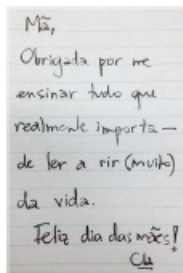 Mã,
Obrigada por me
ensinar tudo que
realmente importa —
de ler a rir (muito)
da vida.
Feliz dia das mães!
Clá